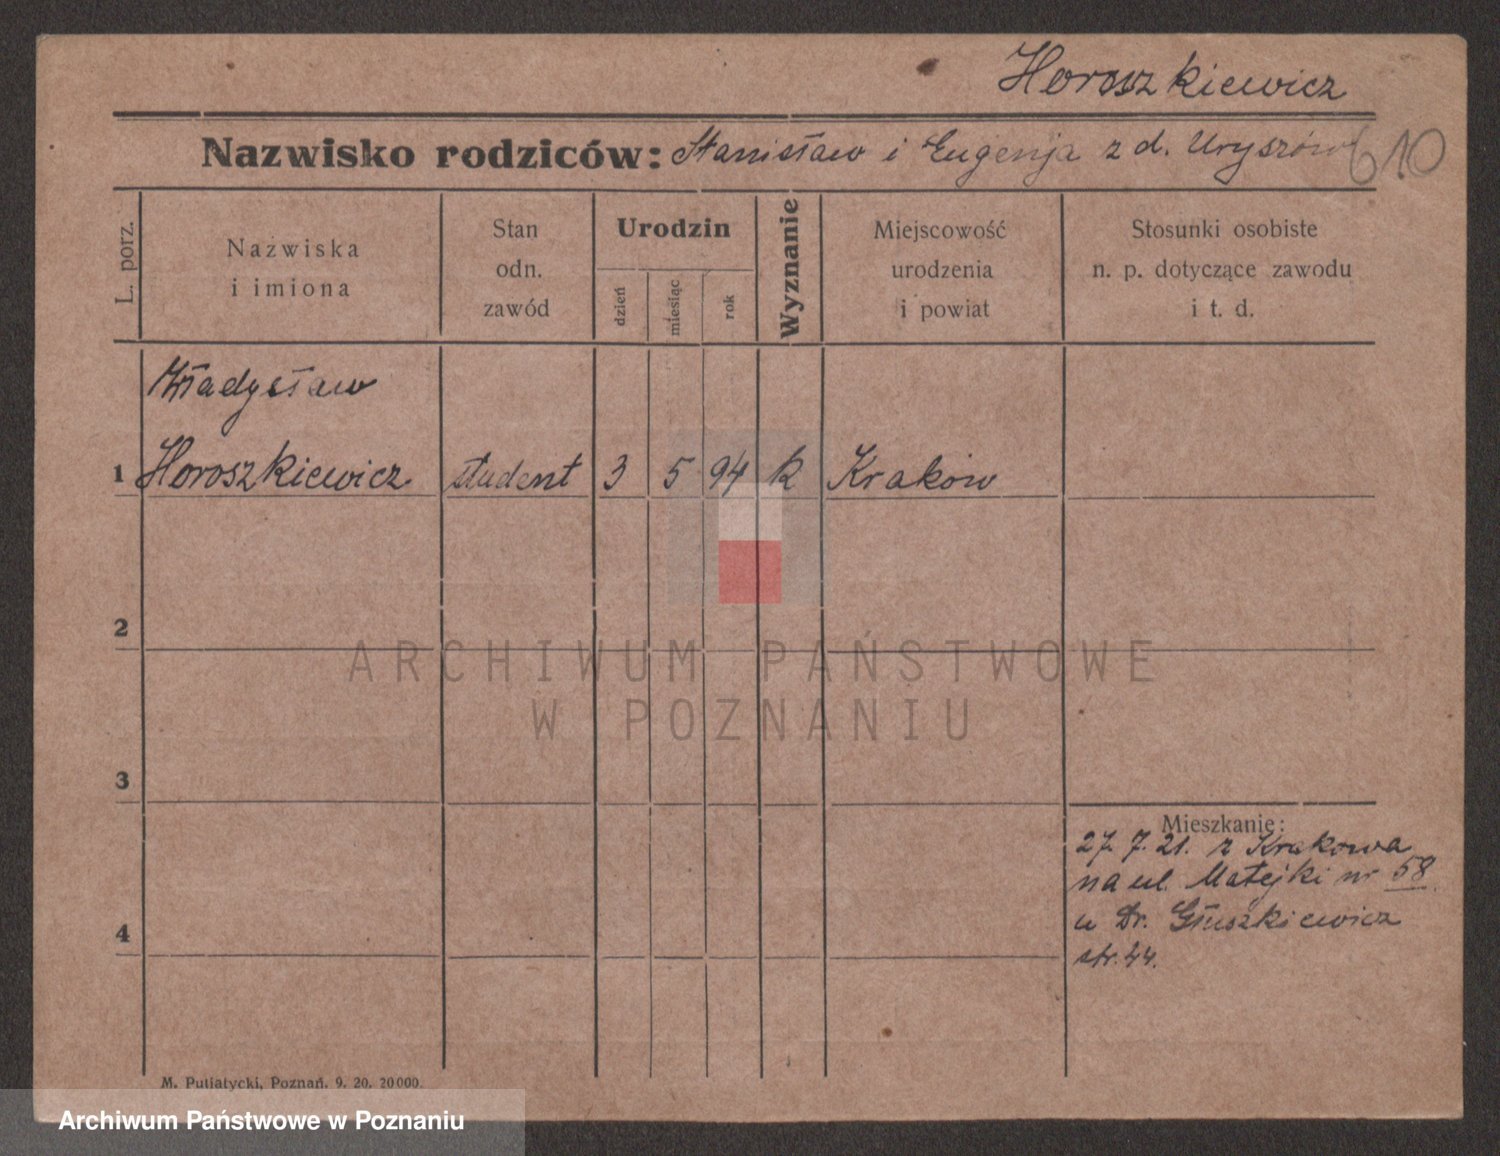 Horoszkiewicz
Nazwisko rodziców: Stanisław i Eugenja z d. Uryszów
610
L. porz.
Nazwiska
i imiona
Stan
odn.
zawód
Urodzin
dzień
miesiąc
rok
Wyznanie
Miejscowość
urodzenia
i powiat
Stosunki osobiste
n. p. dotyczące zawodu
i t. d.
Władysław
1 Horoszkiewicz student 3 5 94 k Kraków
2
ARCHIWUM PAŃSTWOWE
W POZNANIU
3
Mieszkanie:
27. 7. 21. z Krakowa
na ul. Matejki nr 58
u Dr. Głuszkiewicz
str. 44.
4
M. Putiatycki, Poznań. 9. 20. 20000.
Archiwum Państwowe w Poznaniu